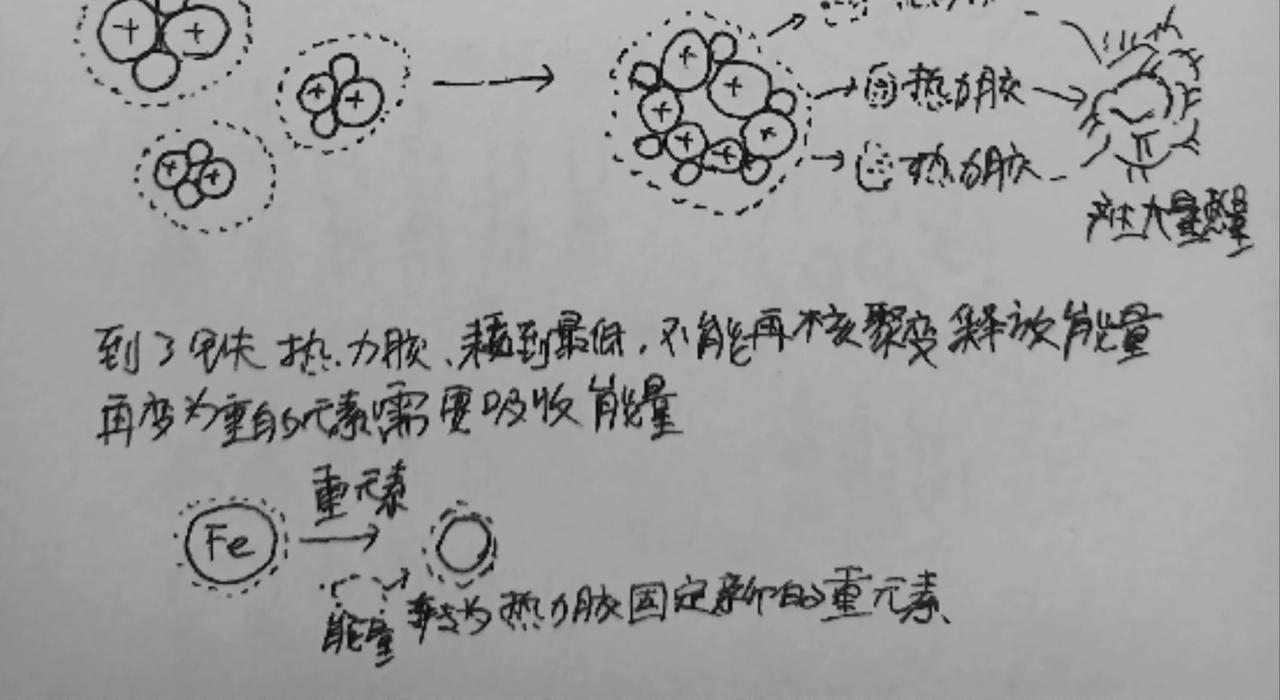 + +
+ +
+ +
+ + + + + +
热力胶
热力胶
产生大量能量
到了铁 热力胶、耗到最低,不能再核聚变释放能量
再变为重的元素需要吸收能量
重元素
Fe
能量 转为热力胶固定新的重元素